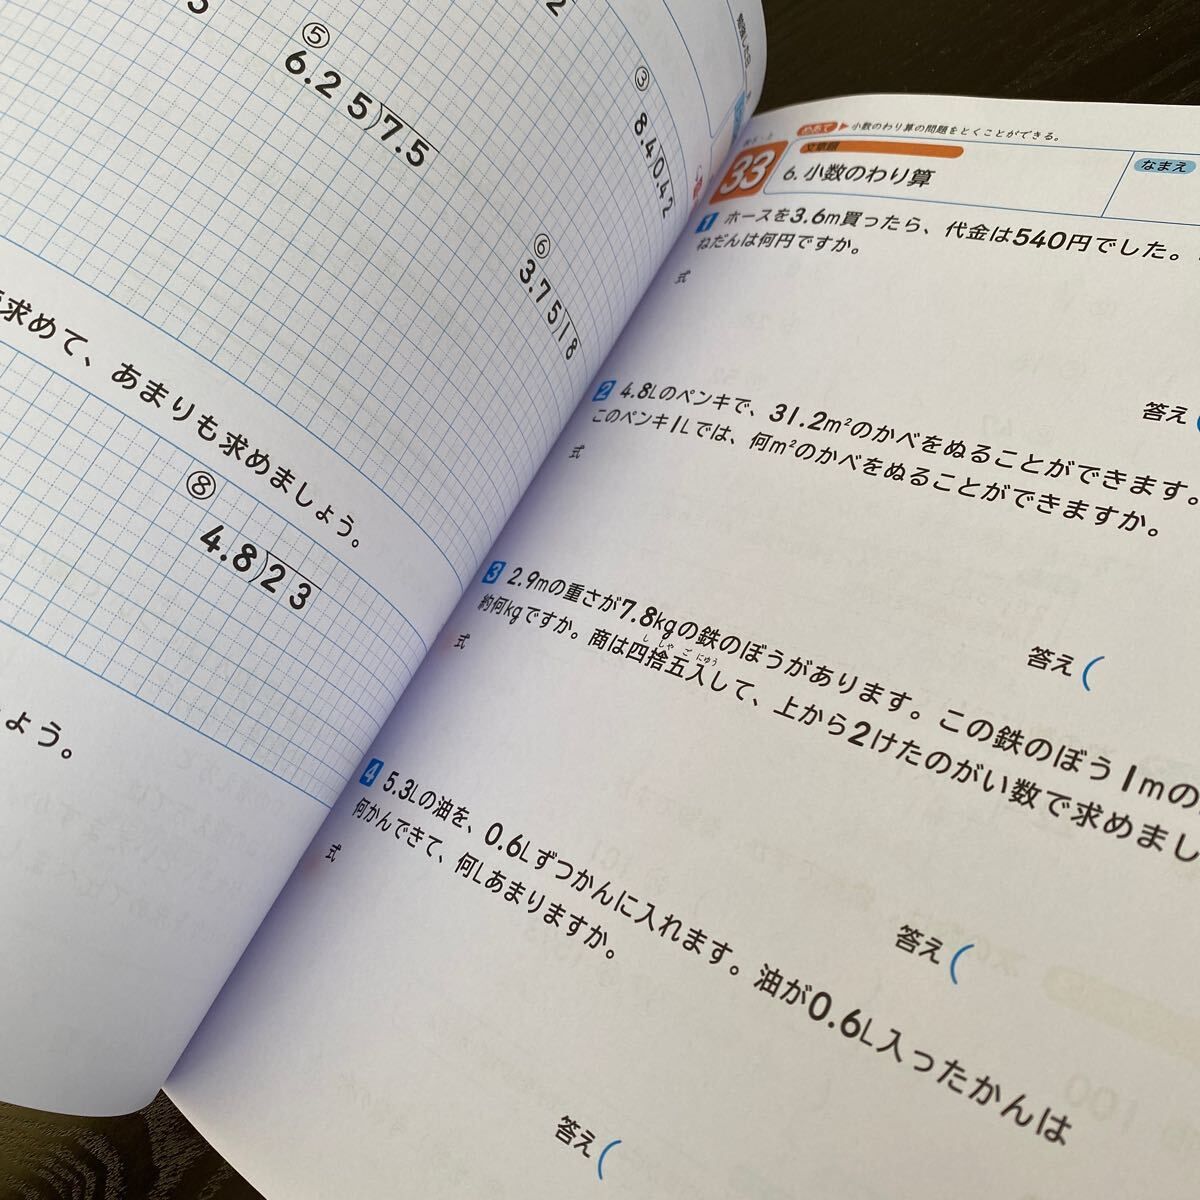 ⑤
6.25)7.5
③
8.4)0.42
⑥
3.75)18
求めて、あまりも求めましょう。
⑧
4.8)23
ょう。
めあて ▶小数のわり算の問題をとくことができる。
33
文章題
6. 小数のわり算
なまえ
1 ホースを3.6m買ったら、代金は540円でした。
ねだんは何円ですか。
式
答え(
2 4.8Lのペンキで、31.2m²のかべをぬることができます。
このペンキ1Lでは、何m²のかべをぬることができますか。
式
答え(
3 2.9mの重さが7.8kgの鉄のぼうがあります。この鉄のぼう1mの
約何kgですか。商は四捨五入して、上から2けたのがい数で求めまし
し しゃ ご にゅう
式
答え(
4 5.3Lの油を、0.6Lずつかんに入れます。油が0.6L入ったかんは
何かんできて、何Lあまりますか。
式
答え(